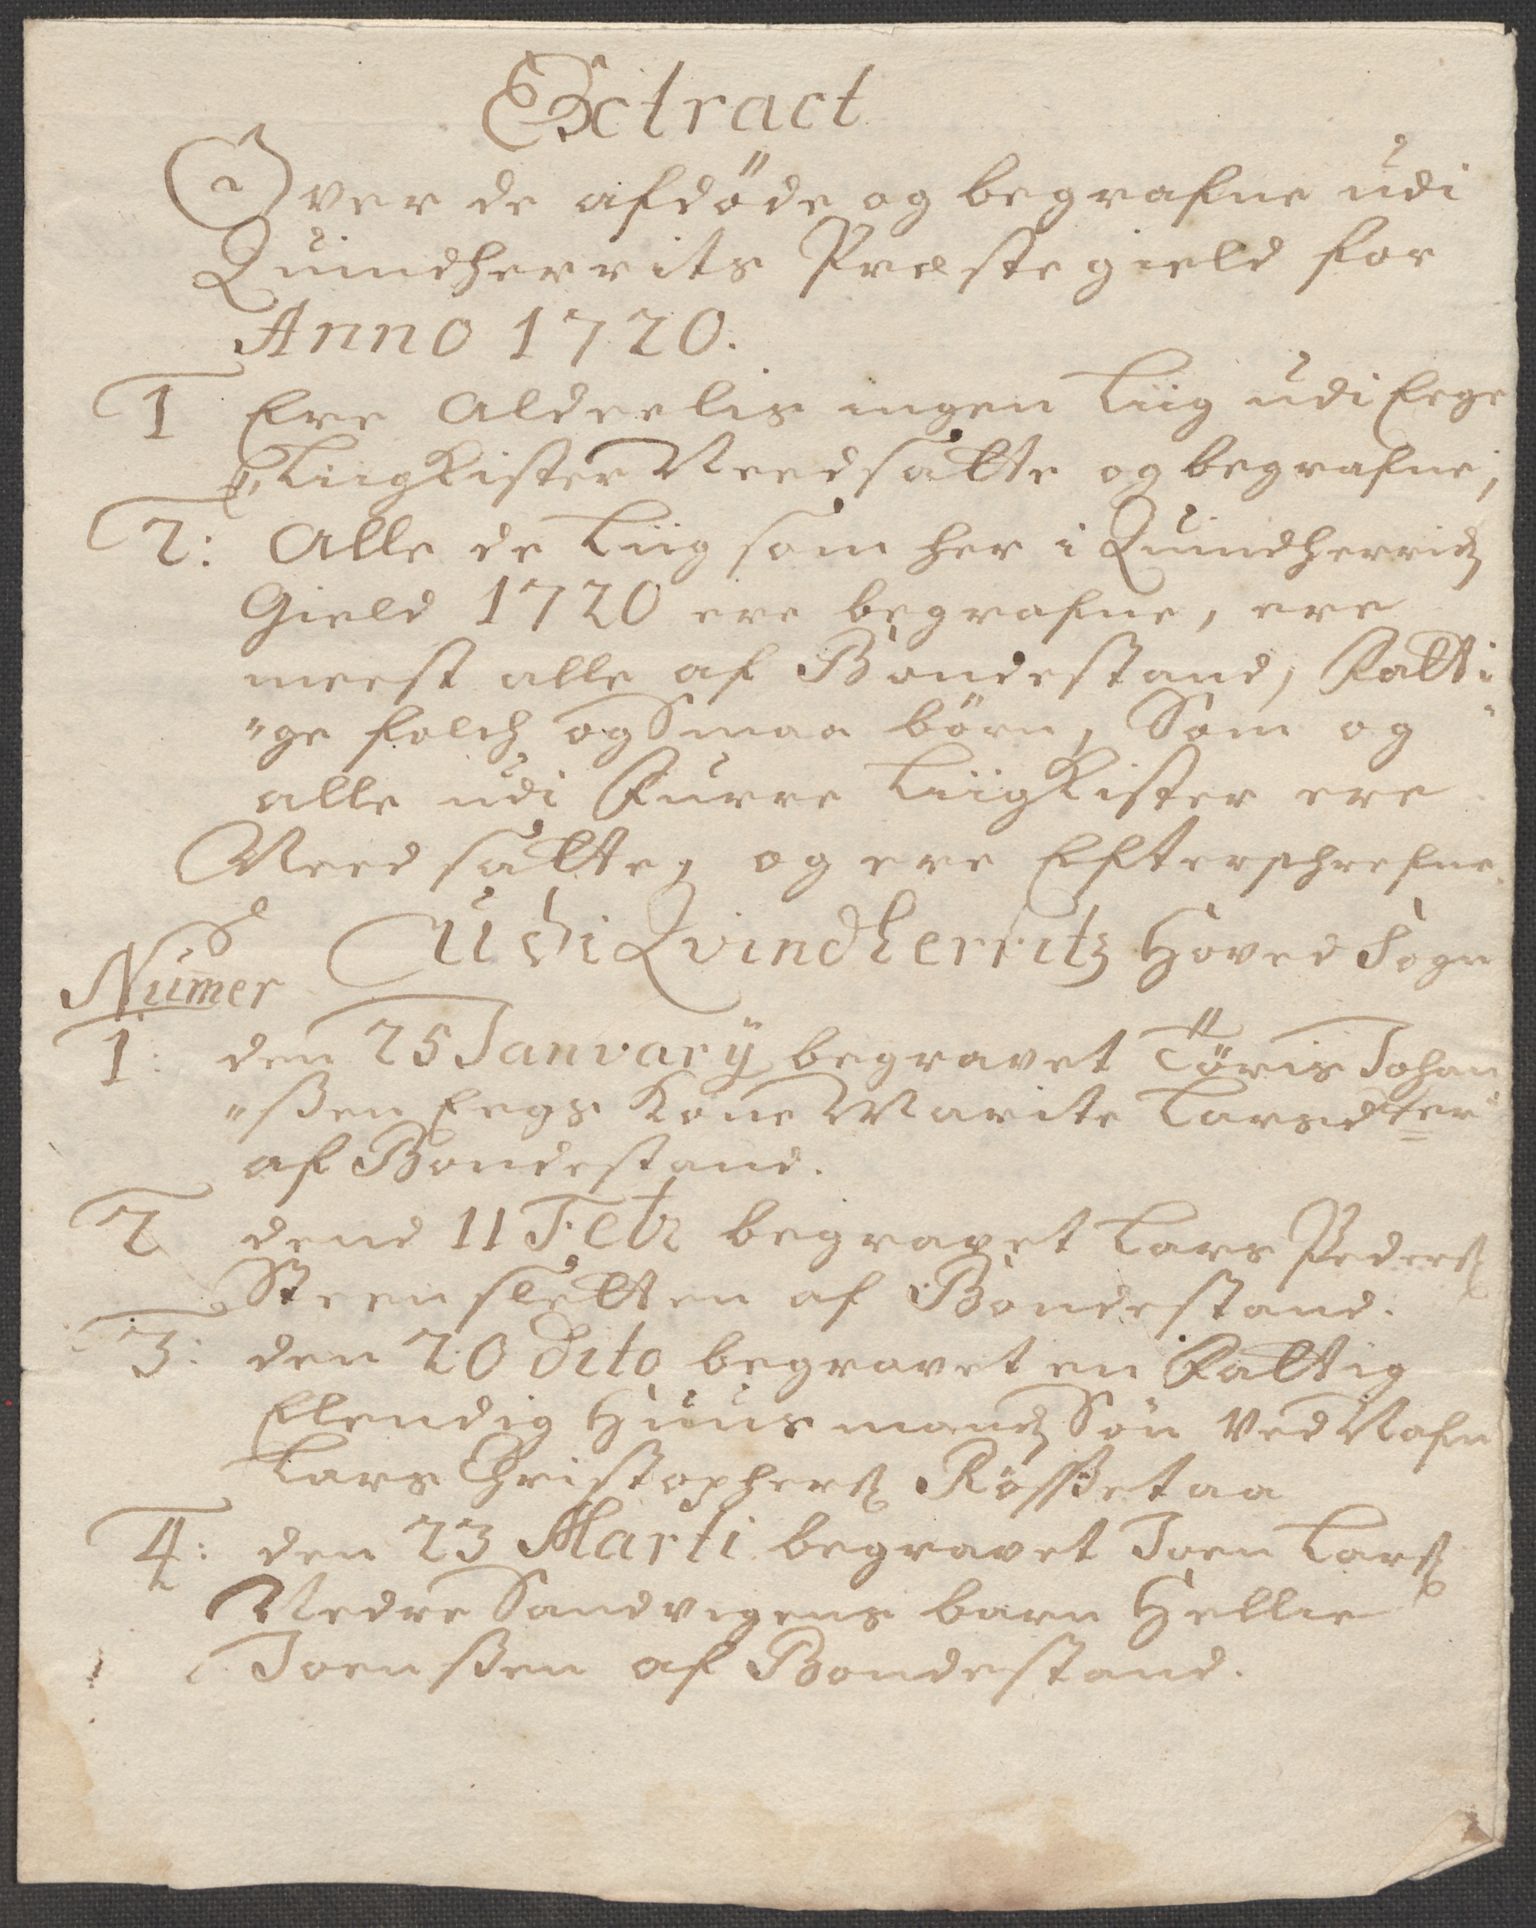 Extract
Over de afdöde og begrafne udi
Quindherrits Præstegield for
Anno 1720.
1 Ere Alderlis ingen Liig udi Eege
Liigkister Needsatte og begrafne;
2: Alle de Liig som her i Quindherridz
Gield 1720 ere begrafne, ere
meest alle af Bondestand, Fatti
"ge folch og Smaa börn, Som og
alle udi Furre Liigkister ere
Needsatte, og ere Efterschrefne.
Udi Qvindherritz Hoved Sogn
Numer
1: den 25 Janvarij begravet Töris Johan
"ßen Eegs Kone Marite Larsdter
af Bondestand.
2 dend 11 Febr begravet Lars Pederß
Steensletten af Bondestand.
3: den 20 Dito begravet en Fattig
Elendig Huusmandz Sön Ved Nafn
Lars Christopherß Rößetaa
4: den 23 Marti begravet Joen Larß
Nedre Sandvigens barn Hellie
Joenßen af Bondestand.